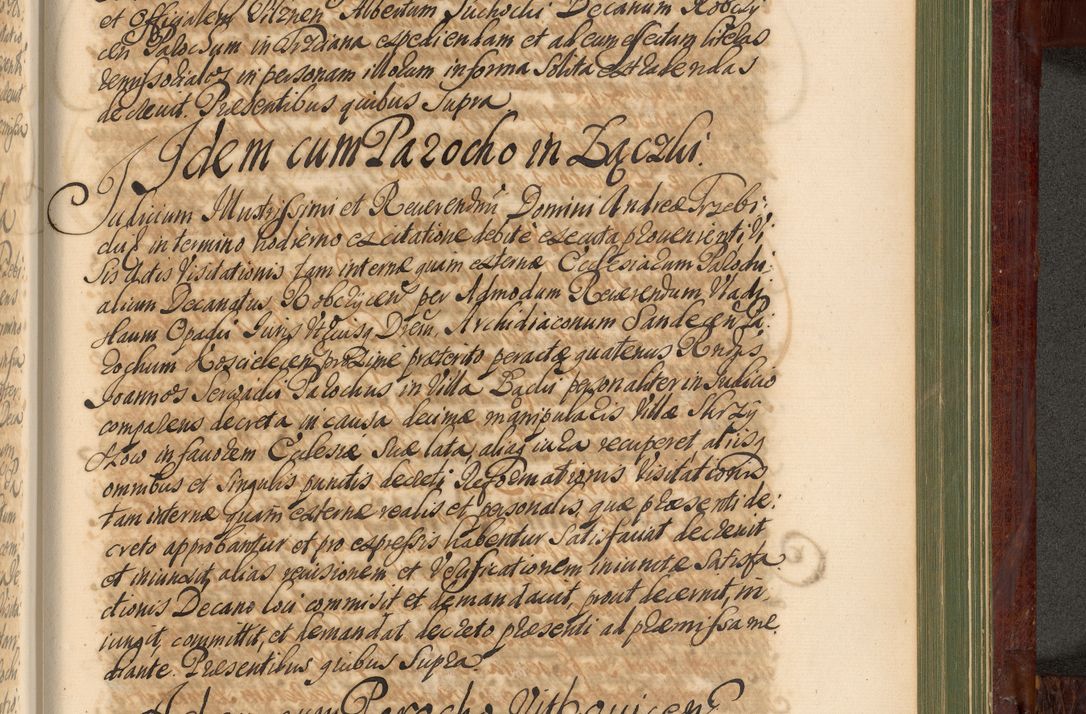 et Officialem Vitznen Albertum Suchocki Decanum Robczy
cen Palocsum in Trzciana expediendam et ad eum effectum literas
demissoriales in personam illorum in forma solita extrahendas
decreuit. Præsentibus quibus supra.
Idem cum Parocho in Łączki.
Judicium Illustrissimi et Reuerendmi Domini Andreæ Trzebi:
cki in termino hodierno ex citatione debite executa proueniente Vi
sis Actis Visitationis tam internæ quam externæ Ecclesiarum Parochi:
alium Decanatus Robczycen per Admodum Reuerendum Vladi
slaum Opacki Juris Vtriusq Drem, Archidiaconum Sandecen Pa:
rochum Koscielecen proxime præterito peractæ quatenus Rndus
Joannes Serwadii Parochus in Villa Łączki personaliter in Judicio
comparens decreta in causa decimæ manipularis Villæ Skrzy
szow in fauorem Ecclesiæ suæ lata, alias iura recuperet, aliisq
omnibus et singulis punctis decreti Reformationis Visitationis
tam internæ quam externæ realis et personalis, quæ præsenti de:
creto approbantur et pro expressis habentur satisfaciat decreuit
et iniunxit, alias reuisionem et Verificationem iniunctæ satisfa
ctionis Decano loci commisit et demandauit, prout decernit, in
iungit, committit, et demandat decreto præsenti ad præmissa me
diante. Præsentibus quibus supra.
Idem cum Parocho Vitkouicen